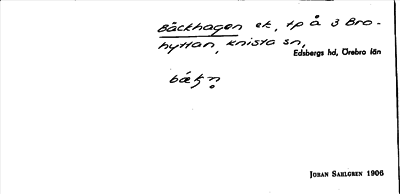 Bäckhagen ek, tp å 3 Bro-
hyttan, Knista sn,
Edsbergs hd, Örebro län
JOHAN SAHLGREN 1906